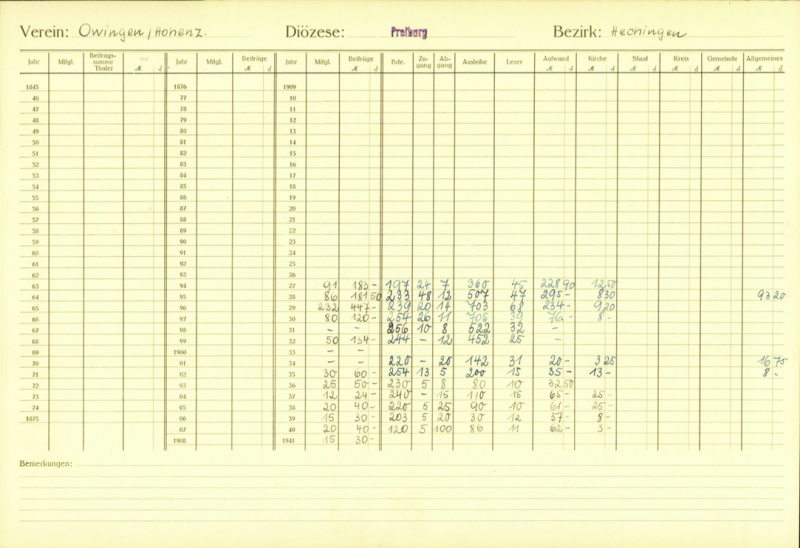 Verein: Owingen / Hohenz. Diözese: Freiburg Bezirk: Hechingen
Jahr Mitgl. Beitrags-summe Thaler M ₰ Jahr Mitgl. Beiträge M ₰ Jahr Mitgl. Beiträge M ₰ Bde. Zu-gang Ab-gang Ausleihe Leser Aufwand M ₰ Kirche M ₰ Staat M ₰ Kreis M ₰ Gemeinde M ₰ Allgemeines M ₰
1845 1876 1909
46 77 10
47 78 11
48 79 12
49 80 13
50 81 14
51 82 15
52 83 16
53 84 17
54 85 18
55 86 19
56 87 20
57 88 21
58 89 22
59 90 23
60 91 24
61 92 25
62 93 26
63 94 27 91 183 - 197 27 7 360 45 228 90 12 50
64 95 28 86 181 50 233 48 12 507 47 295 - 8 30 93 20
65 96 29 232 447 - 239 20 14 703 68 234 - 9 20
66 97 30 80 120 - 254 26 11 705 39 76 - 8 -
67 98 31 - - 256 10 8 522 32 -
68 99 32 50 134 - 244 - 12 452 25 -
69 1900 33 - -
70 01 34 - - 220 - 20 142 31 20 - 3 25 16 75
71 02 35 30 60 - 254 13 5 200 15 35 - 13 - 8 -
72 03 36 25 50 - 230 5 8 80 10 32 50
73 04 37 12 24 - 240 - 15 110 16 65 - 25 -
74 05 38 20 40 - 220 5 25 90 10 61 - 25 -
1875 06 39 15 30 - 203 5 20 30 12 57 - 8 -
07 40 20 40 - 120 5 100 86 11 62 - 3 -
1908 1941 15 30 -
Bemerkungen: